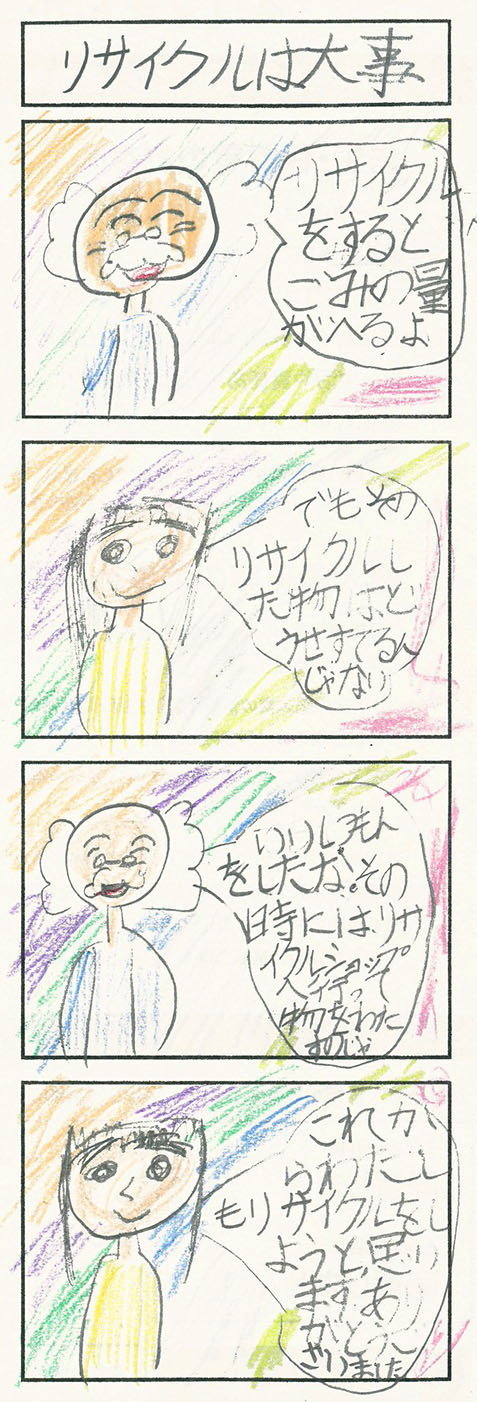 リサイクルは大事
リサイクル
をすると
ごみの量
がへるよ
でもその
リサイクルし
た物はど
うせすてるん
じゃない
いいしつもん
をしたな。その
時にはリサ
イクルショップ
へ行って
物をわた
すのじゃ
これか
らわたし
もリサイクルをし
ようと思い
ます。あり
がとうご
ざいました